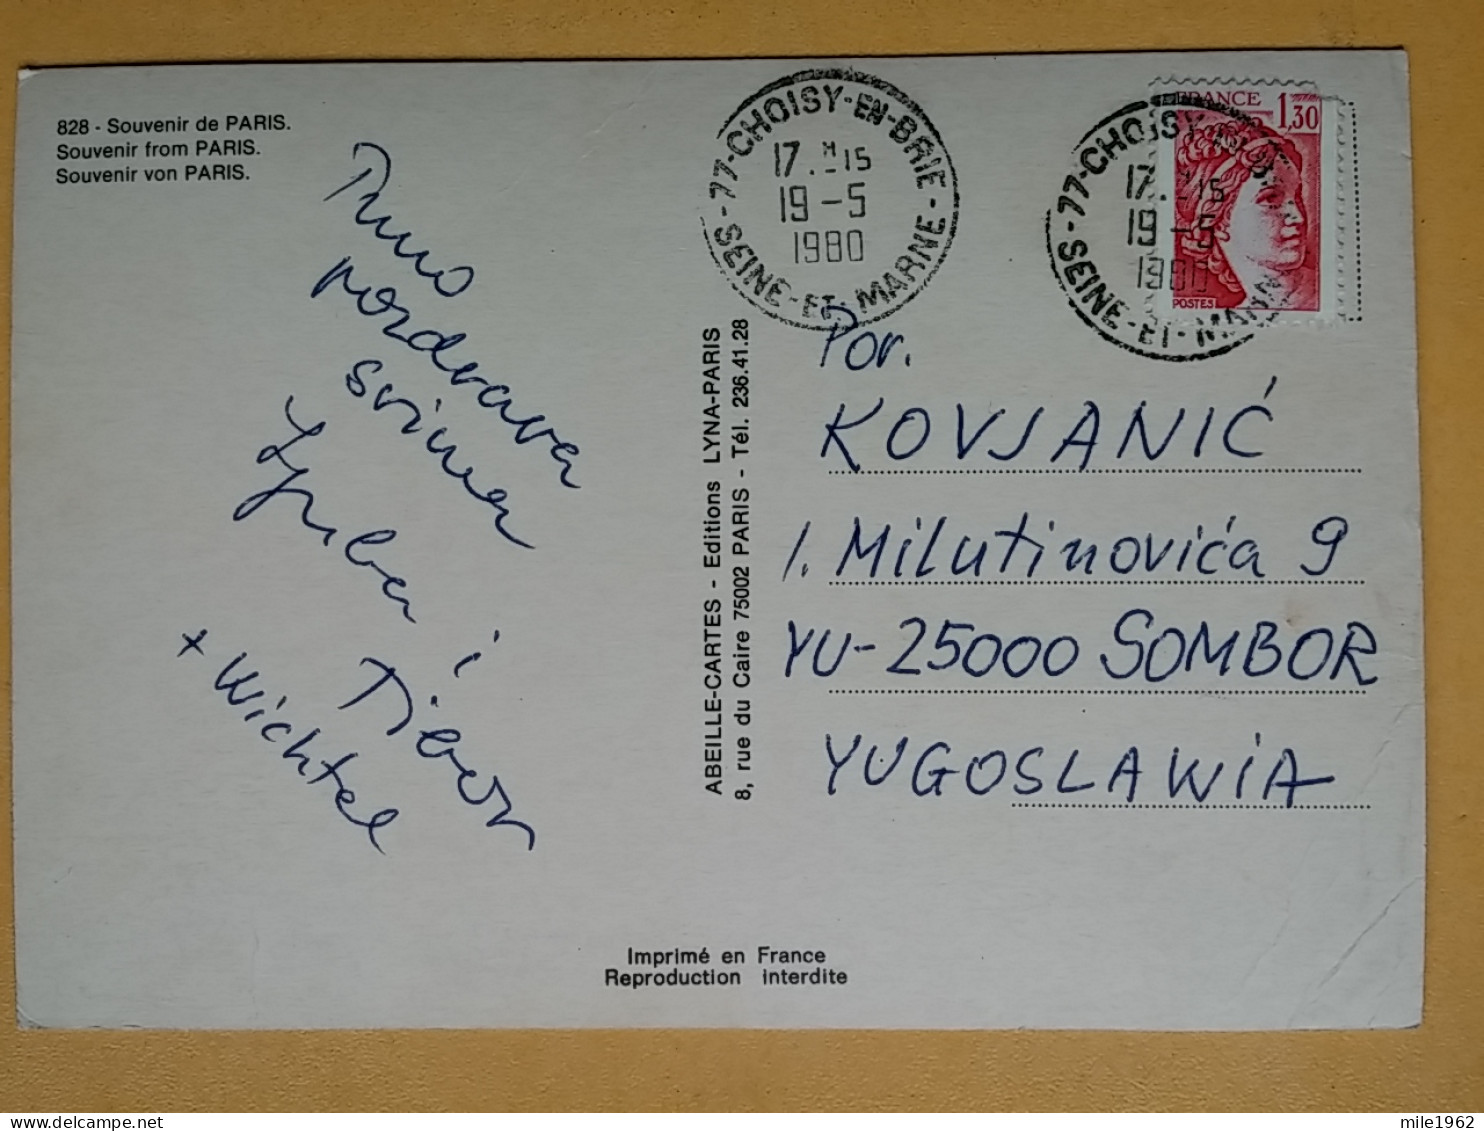 828 - Souvenir de PARIS.
Souvenir from PARIS.
Souvenir von PARIS.
Puno
pozdrava
svima
Ljuba i
Tibor
+ Wichtel
ABEILLE-CARTES - Editions LYNA-PARIS
8, rue du Caire 75002 PARIS - Tél. 236.41.28
77-CHOISY-EN-BRIE
17 H -15
19 -5
1980
SEINE-ET-MARNE
77-CHOISY-EN-BRIE
17 -15
19 -5
1980
SEINE-ET-MARNE
FRANCE
1,30
POSTES
Por.
KOVJANIĆ
I. Milutinovića 9
YU-25000 SOMBOR
YUGOSLAWiA
Imprimé en France
Reproduction interdite
mile1962